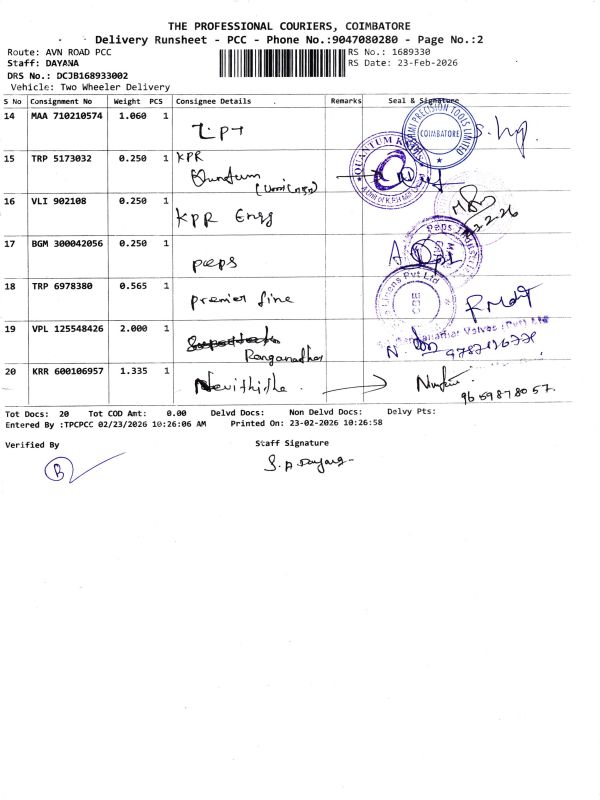 THE PROFESSIONAL COURIERS, COIMBATORE
Delivery Runsheet - PCC - Phone No.:9047080280 - Page No.:2
Route: AVN ROAD PCC
RS No.: 1689330
Staff: DAYANA
RS Date: 23-Feb-2026
DRS No.: DCJB168933002
Vehicle: Two Wheeler Delivery
S No Consignment No Weight PCS Consignee Details Remarks Seal & Signature
14 MAA 710210574 1.060 1
PRECISION TOOLS LIMITED
COIMBATORE
15 TRP 5173032 0.250 1 KPR
QUANTUM KNITS
16 VLI 902108 0.250 1 KPR Engg
17 BGM 300042056 0.250 1 peps
Peps
18 TRP 6978380 0.565 1 premier fine
Linens Pvt Ltd
19 VPL 125548426 2.000 1
Ranganathar
Valves (Pvt) Ltd
20 KRR 600106957 1.335 1
9659878057.
Tot Docs: 20 Tot COD Amt: 0.00 Delvd Docs: Non Delvd Docs: Delvy Pts:
Entered By :TPCPCC 02/23/2026 10:26:06 AM Printed On: 23-02-2026 10:26:58
Verified By Staff Signature
B